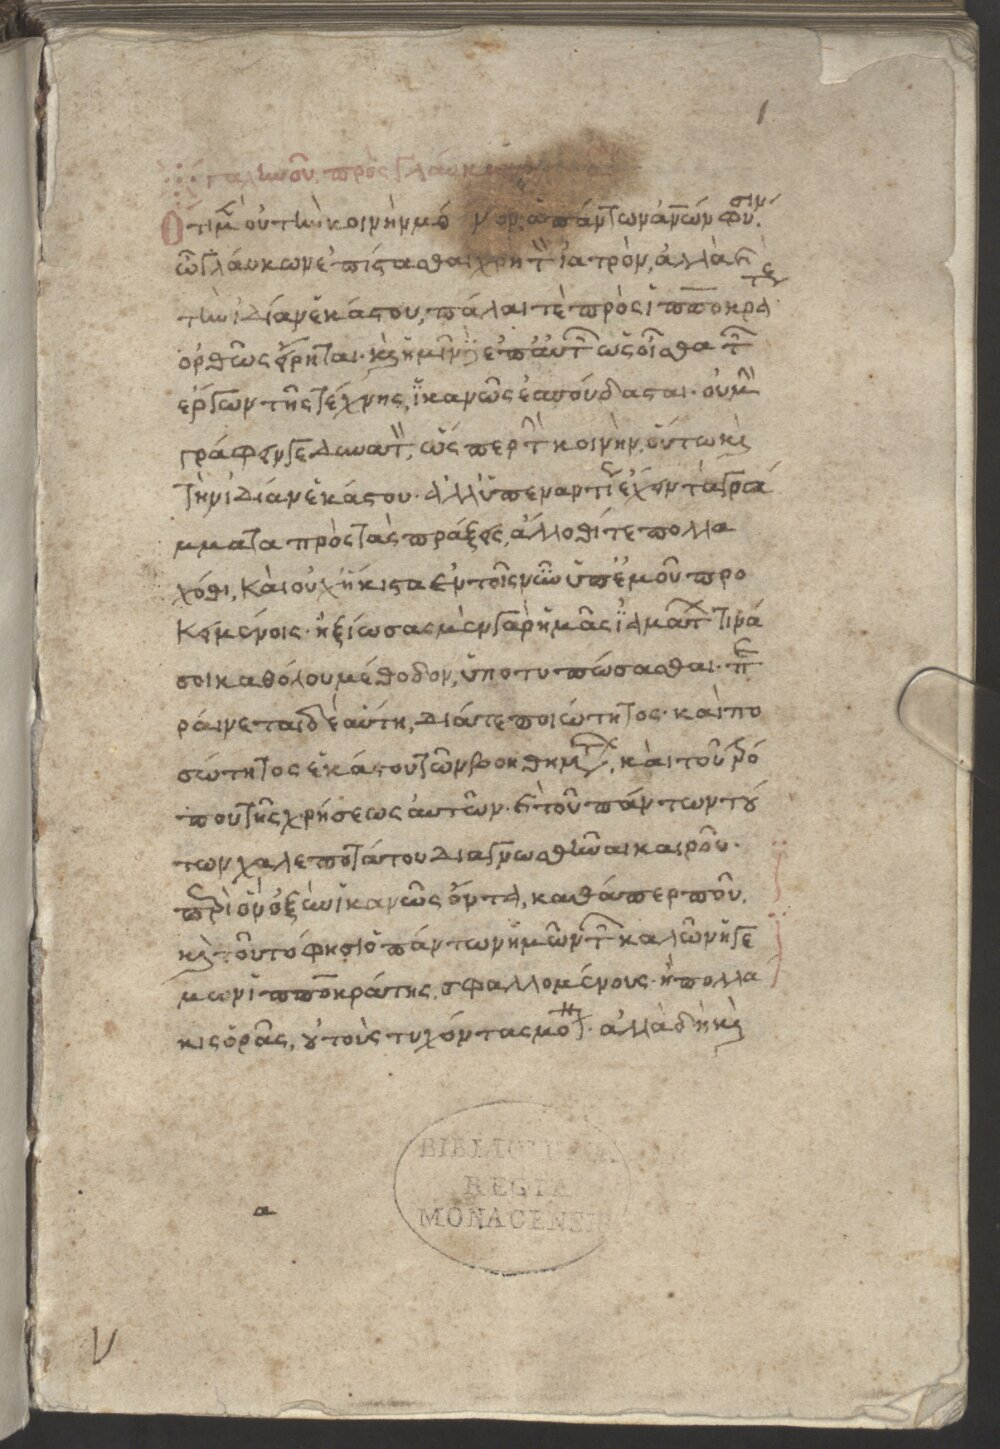 1
γαληνοῦ πρὸς γλαύκ
Ὅτι μὲν οὐ τὴν κοινὴν μόνον ἁπάντων ἀνθρώπων φύσιν,
ὦ γλάυκων ἐπίστασθαι χρὴ τὸν ἰατρὸν, ἀλλὰ καὶ
τὴν ἰδίαν ἑκάστου, πάλαι τὲ πρὸς ἱπποκράτους
ὀρθῶς εἴρηται. καὶ ἡμῖν δὲ ἐπ' αὐτῶν ὡς οἶσθα τῶν
ἔργων τῆς τέχνης, ἱκανῶς ἐσπούδασται. οὐ μὴν
γράφειν γε δυνατὸν, ὥσπερ τὴν κοινὴν, οὕτω καὶ
τὴν ἰδίαν ἑκάστου. ἀλλ' ὑπεναντίως ἔχειν τὰ γρά
μματα πρὸς τὰς πράξεις, ἄλλοθί τε πολλα
χόθι, καὶ οὐχ ἥκιστα ἐν τοῖς νῦν ὑπ' ἐμοῦ προ
κειμένοις. ἠξίωσας μὲν γὰρ ἡμᾶς ἰαμάτων τινά
σοι καθόλου μέθοδον, ὑποτυπώσασθαι. πε
ραίνεται δὲ αὕτη, διά τε ποιότητος. καὶ πο
σότητος ἑκάστου τῶν βοηθημάτων, καὶ τοῦ τρό
που τῆς χρήσεως αὐτῶν. καὶ τοῦ πάντων τού
των χαλεπωτάτου διαγνωσθῆναι καιροῦ.
περὶ ὃν ὀξὺν ἱκανῶς ὄντα, καθάπερ που,
καὶ τοῦτό φησι ὁ πάντων ἡμῶν τῶν καλῶν ἡγε
μὼν ἱπποκράτης, σφαλλομένους. ἢ πολλά
κις ὁρᾶς, οὐ τοὺς τυχόντας μόνον. ἀλλὰ δὴ καὶ
BIBLIOTHECA
REGIA
MONACENSIS
α